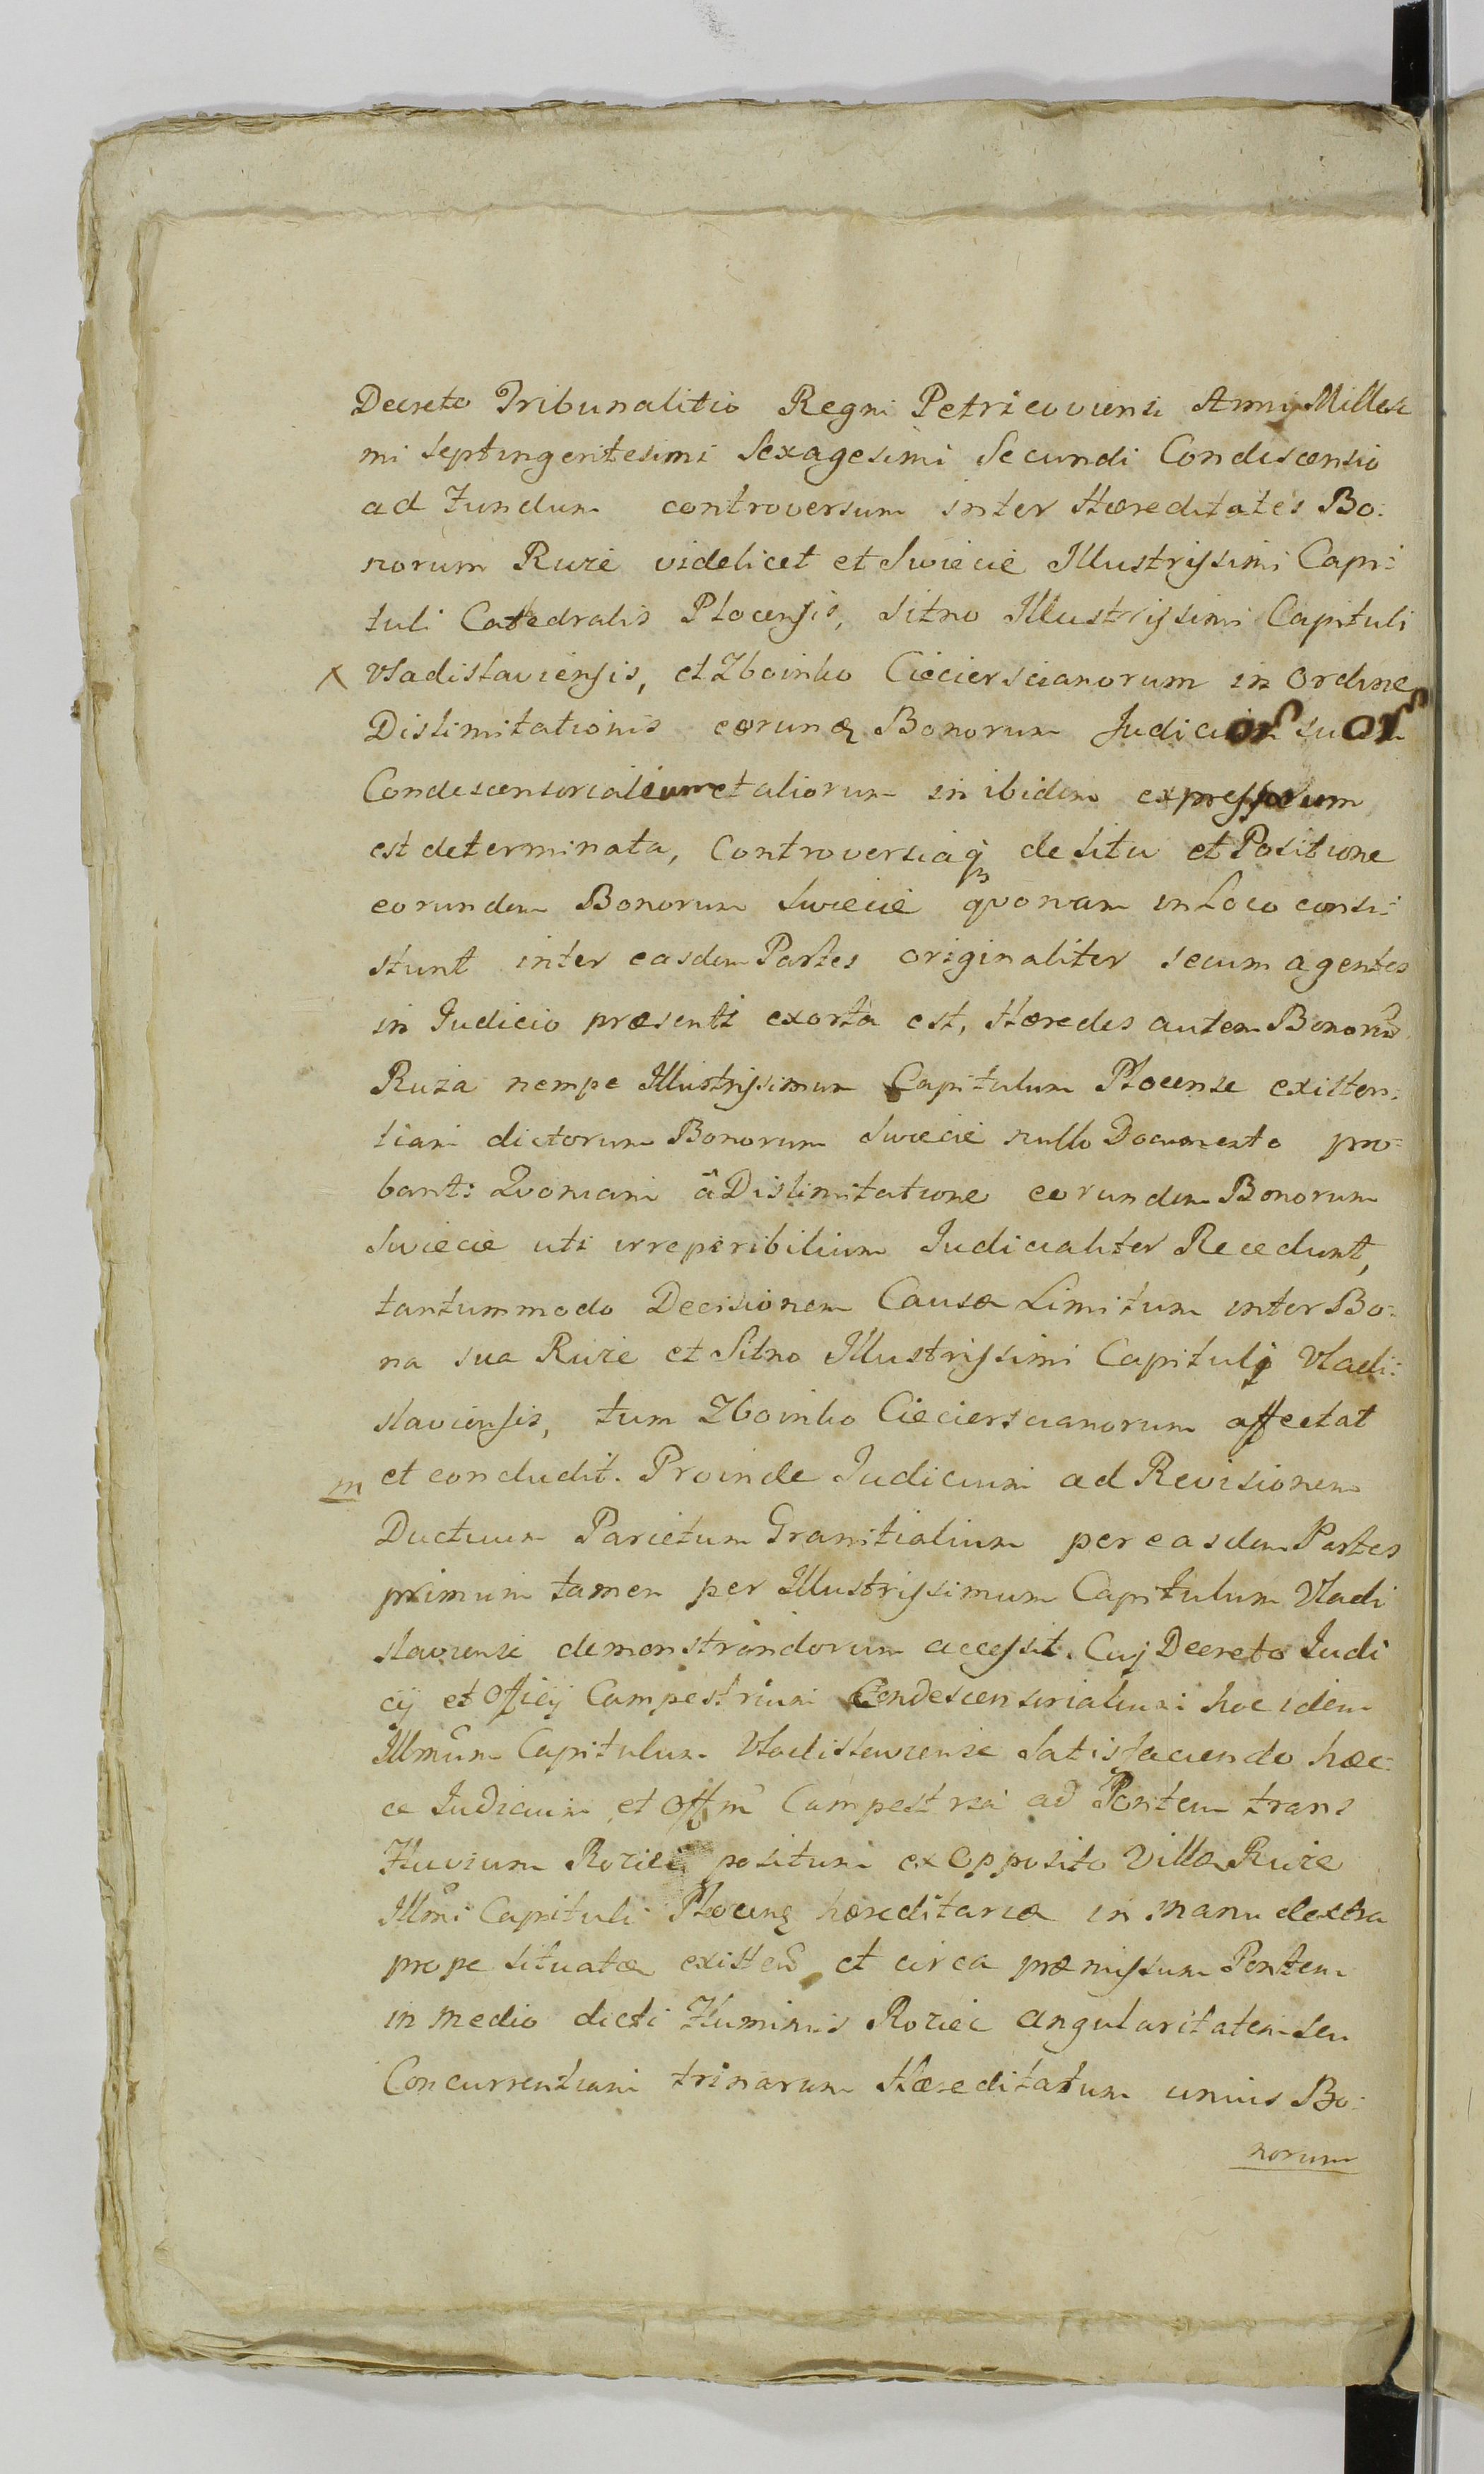 Decreto Tribunalitio Regni Petricoviensi Anni Millesi
mi Septingentesimi Sexagesimi Secundi Condescensio
ad Fundum controversum inter Hæreditates Bo:
norum Ruże videlicet et Swiecie Illustrissimi Capi:
tuli Cathedralis Plocensis, Sitno Illustrissimi Capituli
x Vladislaviensis, et Zboinko Ciecierscianorum in Ordine
Dislimitationis eorunq Bonorum Judicior suor
Condescensorialium et aliorum in ibidem expressorum
est determinata, Controversiaq de Situ et Positione
eorundem Bonorum Swiecie quonam in Loco consi:
stunt inter easdem Partes originaliter secum agentes
in Judicio præsenti exorta est, Hæredes autem Bonorũ
Ruża nempe Illustrissimum Capitulum Plocense existen:
tiam dictorum Bonorum Swiecie nullo Documento pro=
bant: Quoniam â Dislimitatione eorundem Bonorum
Swiecie uti irreperibilium Judicialiter Recedunt,
tantummodo Decisionem Causæ Limitum inter Bo:
na sua Ruże et Sitno Illustrissimi Capituli Vladi:
slaviensis, tum Zboinko Ciecierscianorum affectat
m et concludit. Proinde Judicium ad Revisionem
Ductuum Parietum Granitialium per easdem Partes
primum tamen per Illustrissimum Capitulum Vladi
slaviense demonstrandorum accessit. Cuj Decreto Judi
cij et Officij Campestrium Condescensorialium hoc idem
Illmũm Capitulum Vladislaviense Satisfaciendo hæc:
ce Judicium et Offm̃ Campestria ad Pontem trans
Fluvium Roziec positum ex Opposito Villæ Ruże
Illm̃i Capituli Plocens hæreditariæ in manu dextra
prope situatæ existeñ et circa præmissum Pontem
in medio dicti Fluminis Roziec angularitatem seu
Concurrentiam trinarum Hæreditatum unius Bo:
norum